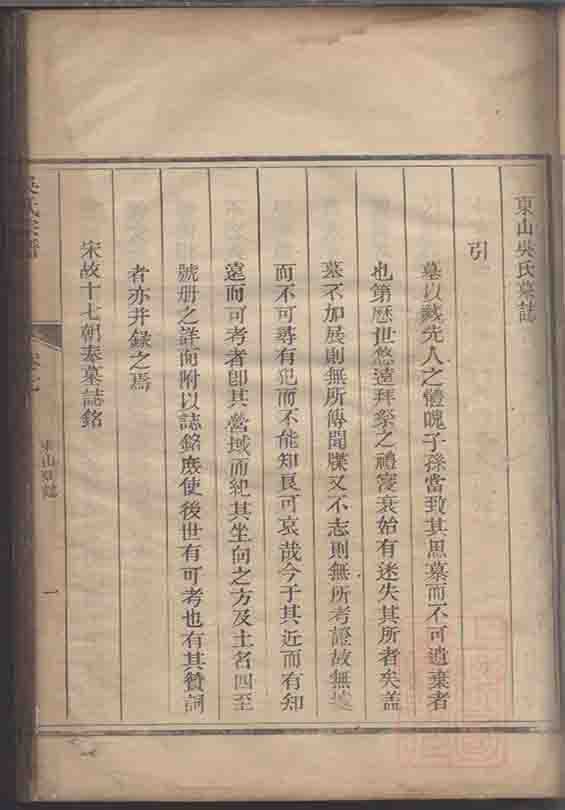 東山吳氏墓誌
引
墓以藏先人之體魄子孫當致其思慕而不可遺棄者
也第歷世悠遠拜祭之禮寖衰始有迷失其所者矣蓋
墓不加展則無所傳聞牒又不志則無所考證故無遠
而不可尋有犯而不能知良可哀哉今于其近而有知
遠而可考者卽其塋域而紀其坐向之方及土名四至
號册之詳而附以誌銘庶使後世有可考也有其贊詞
者亦并錄之焉
宋故十七朝奉墓誌銘
吳氏宗譜
卷七
東山墓誌
一